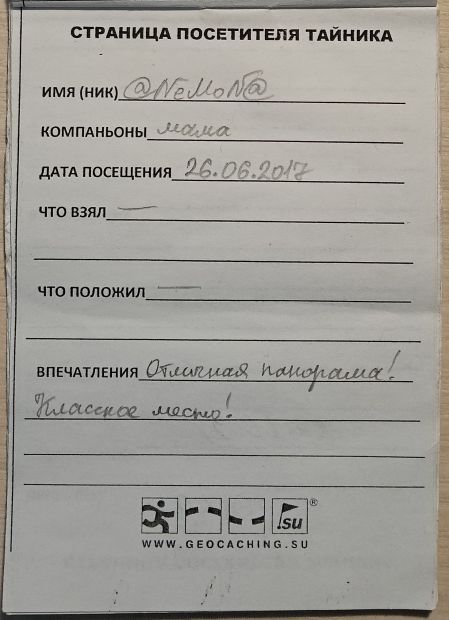 СТРАНИЦА ПОСЕТИТЕЛЯ ТАЙНИКА
ИМЯ (НИК) @NeMoN@
КОМПАНЬОНЫ мама
ДАТА ПОСЕЩЕНИЯ 26.06.2017
ЧТО ВЗЯЛ —
ЧТО ПОЛОЖИЛ —
ВПЕЧАТЛЕНИЯ Отличная панорама!
Классное место!
.su ®
WWW.GEOCACHING.SU